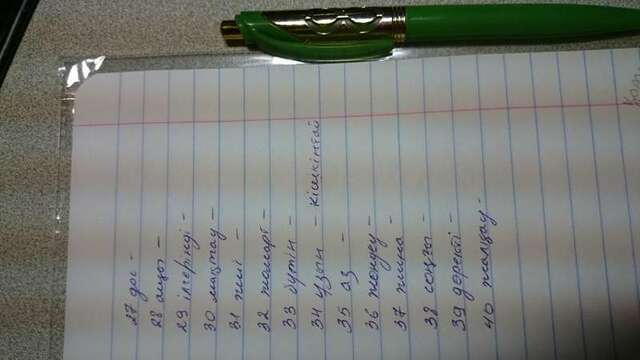 27 дос -
28 ащы -
29 ілгерінді -
30 мақтау -
31 жиі -
32 жомарт -
33 бүтін -
34 ұзын - кішкінтай
35 аз -
36 жөндеу -
37 жина -
38 соңғы -
39 деректі -
40 жалқау -